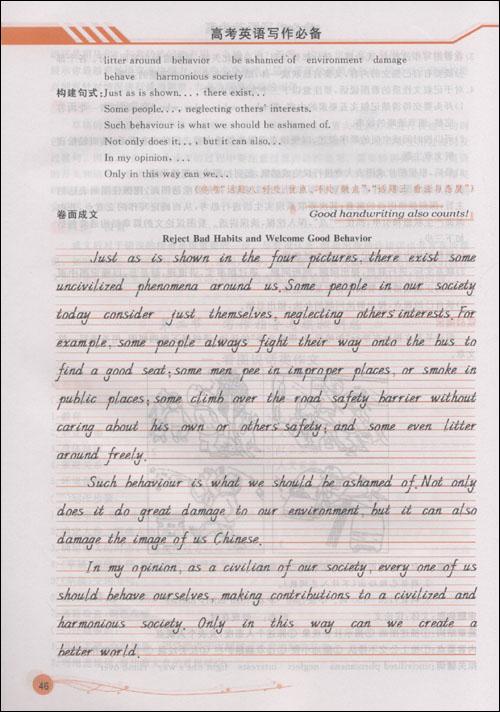 高考英语写作必备
litter around behavior be ashamed of environment damage
behave harmonious society
构建句式:Just as is shown..., there exist...
Some people..., neglecting others' interests.
Such behaviour is what we should be ashamed of.
Not only does it..., but it can also...
In my opinion, ...
Only in this way can we...
卷面成文
Good handwriting also counts!
Reject Bad Habits and Welcome Good Behavior
Just as is shown in the four pictures, there exist some
uncivilized phenomena around us. Some people in our society
today consider just themselves, neglecting others' interests. For
example, some people always fight their way onto the bus to
find a good seat; some men pee in improper places, or smoke in
public places; some climb over the road safety barrier without
caring about his own or others' safety; and some even litter
around freely.
Such behaviour is what we should be ashamed of. Not only
does it do great damage to our environment, but it can also
damage the image of us Chinese.
In my opinion, as a civilian of our society, every one of us
should behave ourselves, making contributions to a civilized and
harmonious society. Only in this way can we create a
better world.
46